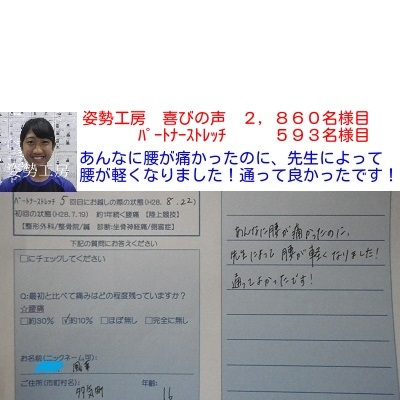 姿勢工房　喜びの声　２，８６０名様目
ﾊﾟｰﾄﾅｰｽﾄﾚｯﾁ　５９３名様目
あんなに腰が痛かったのに、先生によって
腰が軽くなりました！通って良かったです！
姿勢工房
ﾊﾟｰﾄﾅｰｽﾄﾚｯﾁ 5回目にお越しの際の状態(H28. 8. 22)
初回の状態(H28.7.19) 約1年続く腰痛 【陸上競技】
【整形外科/整骨院/鍼 診断:坐骨神経痛/側弯症】
下記の質問にお答えください
□にチェックしてください
Q:最初と比べて痛みはどの程度残っていますか？
☆腰痛
□約30% ☑約10% □ほぼ無し □完全に無し
お名前(ニックネーム可):
ご住所(市町村名): 多気町 年齢: 16
あんなに腰が痛かったのに、
先生によって 腰が軽くなりました！
通ってよかったです！